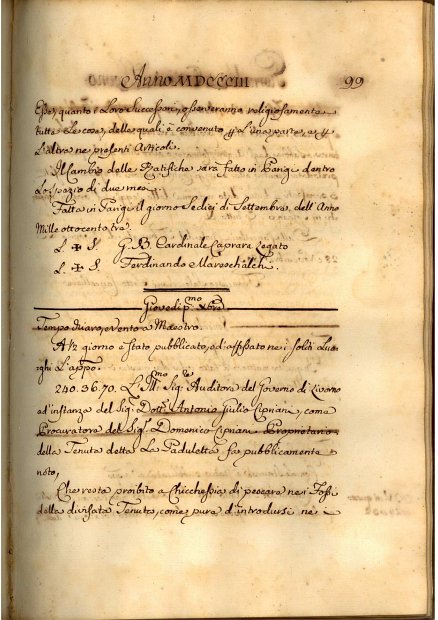 Anno MDCCCIII 99
Esse, quanto i Loro Successori, osserveranno religiosamente
tutte le cose, delle quali è convenuto p l'una parte, e p
l'altra ne presenti Articoli.
Il Cambio delle Ratifiche sarà fatto in Parigi dentro
Lo spazio di due mesi.
Fatta in Parigi il giorno Sedici di Settembre dell'Anno
Mille ottocento tre.
L. ✠ S. G. B. Cardinale Caprara Legato
L. ✠ S. Ferdinando Mareschalch.
Giovedì pmo Xbre
Tempo chiaro, e vento a Maestro.
A ½ giorno è stato pubblicato, ed affissato nei soliti Luo-
ghi L'appo.
240.36.70. L'Ill.mo Sig.e Auditore del Governo di Livorno
ad'instanza del Sig.e Dott.e Antonio Giulio Cipriani, come
Procuratore del Sig.e Domenico Cipriani Proprietario
della Tenuta detta La Paduletta fa pubblicamente
noto,
Che resta proibito a Chicchessia di pescare nei Fossi
della divisata Tenuta, come pure d'introdursi ne i